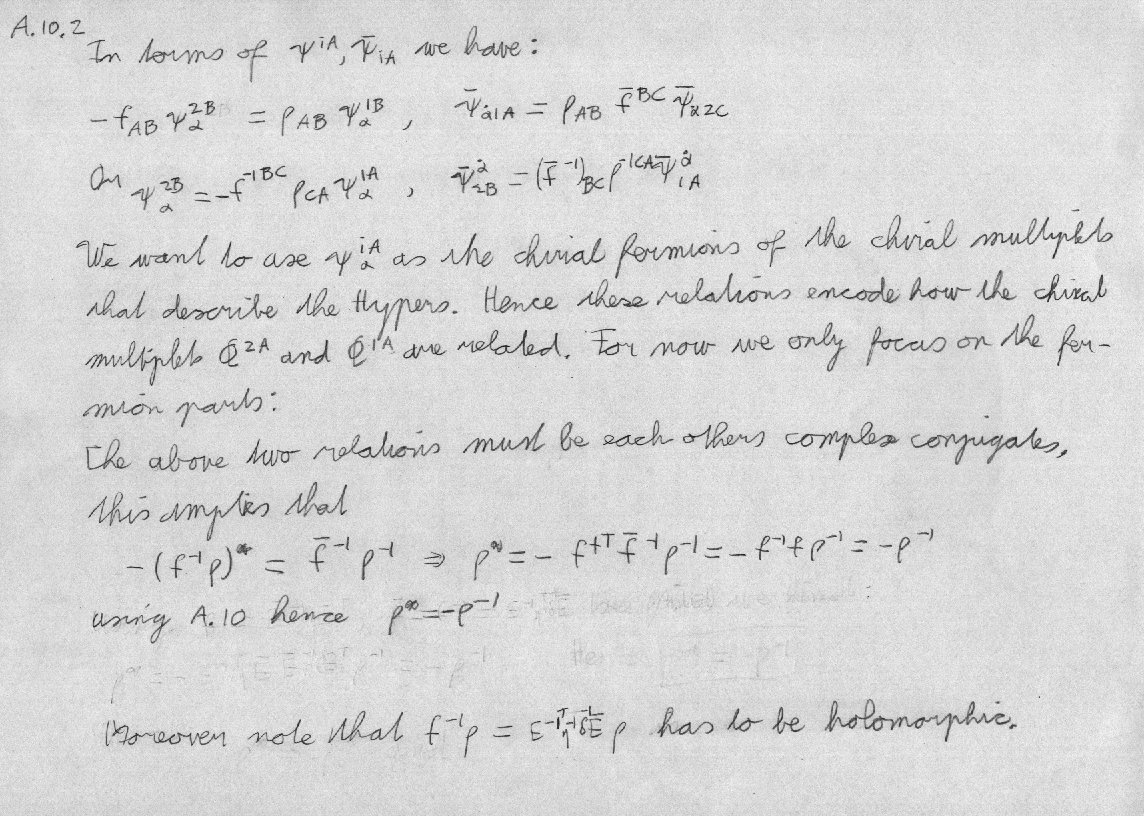 A.10.2
In terms of ψ^{iA}, ψ̄_{iA} we have:
-f_{AB} ψ_α^{2B} = ρ_{AB} ψ_α^{1B}, ψ̄_{α̇1A} = ρ_{AB} f̄^{BC} ψ̄_{α̇2C}
Or ψ_α^{2B} = -f^{-1BC} ρ_{CA} ψ_α^{1A}, ψ̄_{2B}^{α̇} = (f̄^{-1})_{BC} ρ^{-1CA} ψ̄_{1A}^{α̇}
We want to use ψ_α^{iA} as the chiral fermions of the chiral multiplets
that describe the Hypers. Hence these relations encode how the chiral
multiplets Φ^{2A} and Φ^{1A} are related. For now we only focus on the fer-
mion parts:
The above two relations must be each others complex conjugates,
this implies that
-(f^{-1}ρ)^* = f̄^{-1} ρ^{-1} ⇒ ρ^* = - f^{+T} f̄^{-1} ρ^{-1} = - f^{-1} f ρ^{-1} = -ρ^{-1}
using A.10 hence ρ^* = -ρ^{-1}
Moreover note that f^{-1}ρ = ρ has to be holomorphic.